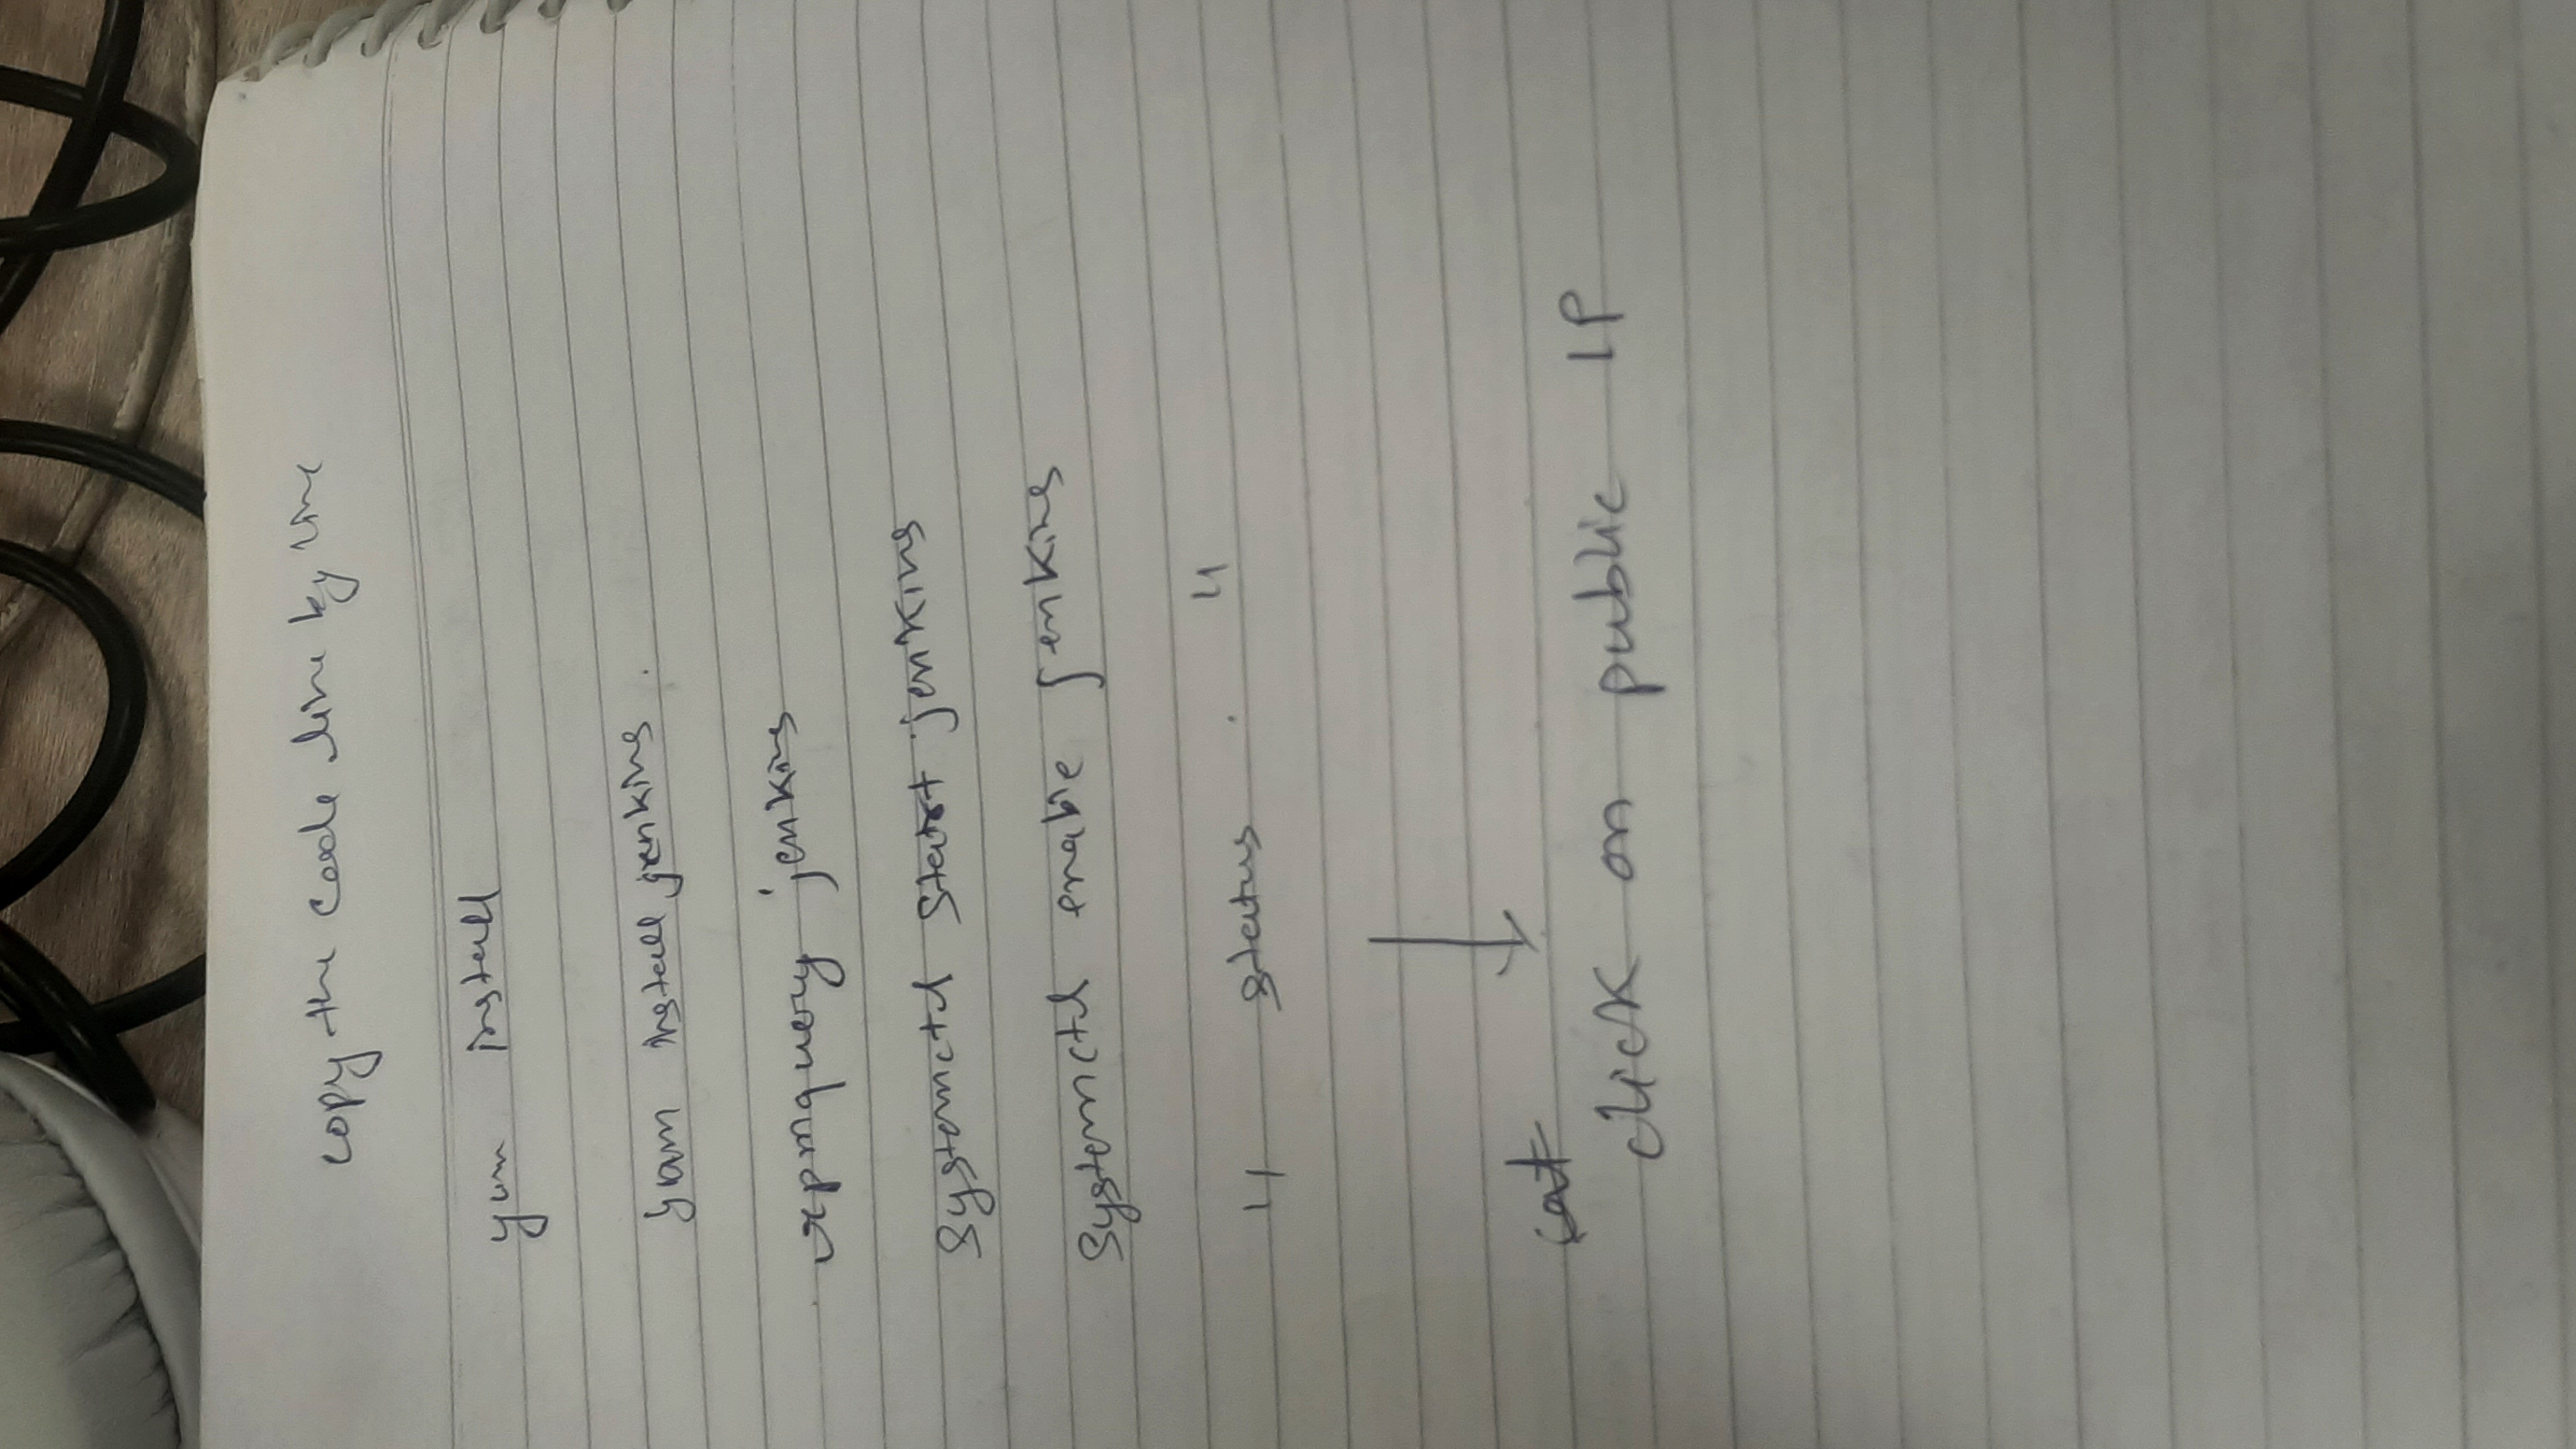 copy the code line by line
yum install
yum install jenkins.
rpmquery jenkins
systemctl start jenkins
systemctl enable jenkins
" status . "
cat
click on public IP